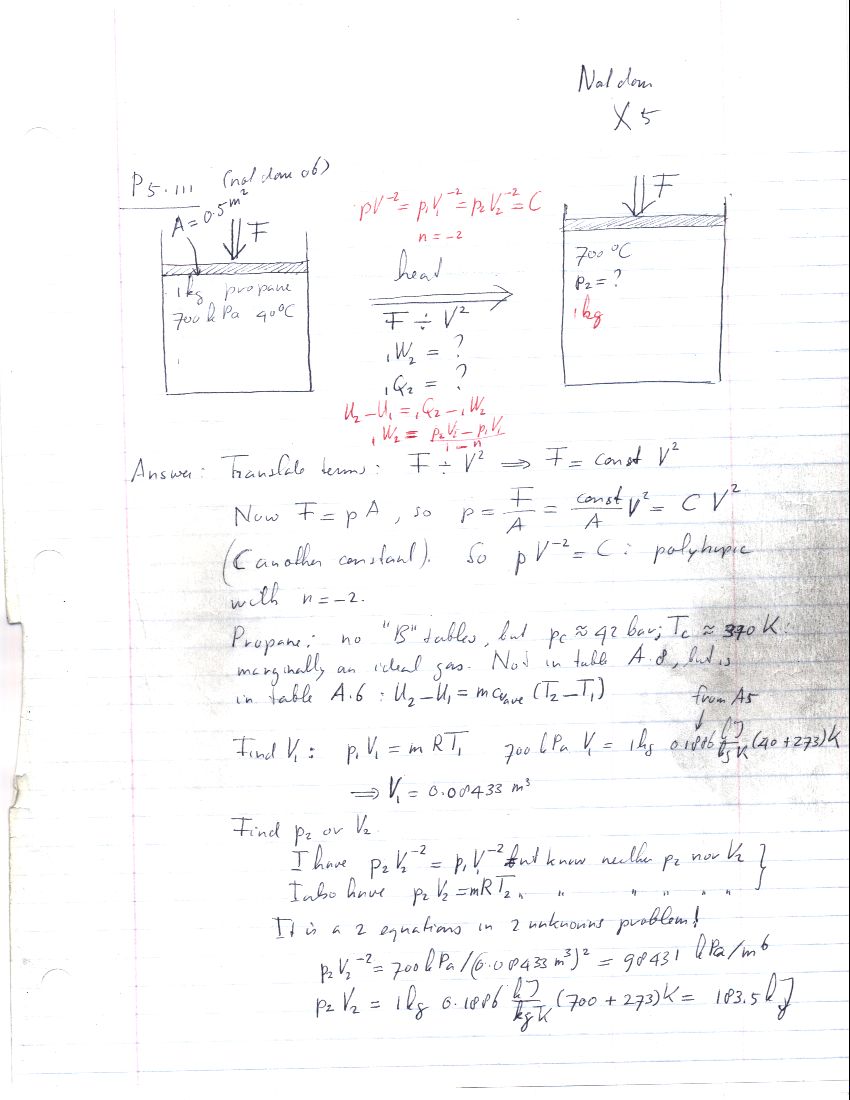 Nal dom
X 5
P 5.111 (nal dom 06)
A = 0.5 m²
F
1 kg propane
700 kPa 40°C
pV⁻² = p₁V₁⁻² = p₂V₂⁻² = C
n = -2
heat
F ÷ V²
₁W₂ = ?
₁Q₂ = ?
U₂ - U₁ = ₁Q₂ - ₁W₂
₁W₂ = (p₂V₂ - p₁V₁)/(1 - n)
F
700°C
p₂ = ?
1 kg
Answer: Translate terms: F ÷ V² ⟹ F = const V²
Now F = pA, so p = F/A = const/A V² = C V²
(C another constant). So pV⁻² = C : polytropic
with n = -2.
Propane: no "B" tables, but pc ≈ 42 bar; Tc ≈ 370 K:
marginally an ideal gas. Not in table A.8, but is
in table A.6 : U₂ - U₁ = m cvave (T₂ - T₁)
from A5
Find V₁ : p₁V₁ = m R T₁ 700 kPa V₁ = 1 kg 0.1886 kJ/kg K (40 + 273) K
⟹ V₁ = 0.08433 m³
Find p₂ or V₂
I have p₂V₂⁻² = p₁V₁⁻² but know neither p₂ nor V₂ }
I also have p₂V₂ = mRT₂, " " " " "
It is a 2 equations in 2 unknowns problem!
p₂V₂⁻² = 700 kPa/(0.08433 m³)² = 98431 kPa/m⁶
p₂V₂ = 1 kg 0.1886 kJ/kg K (700 + 273) K = 183.5 kJ